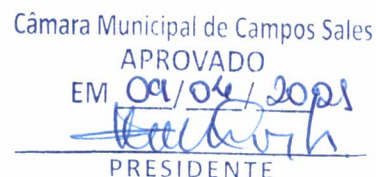 Câmara Municipal de Campos Sales
APROVADO
EM 09/04/2021
PRESIDENTE